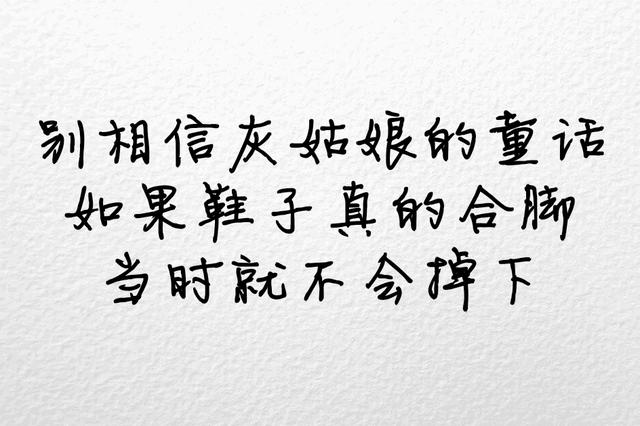 别相信灰姑娘的童话
如果鞋子真的合脚
当时就不会掉下